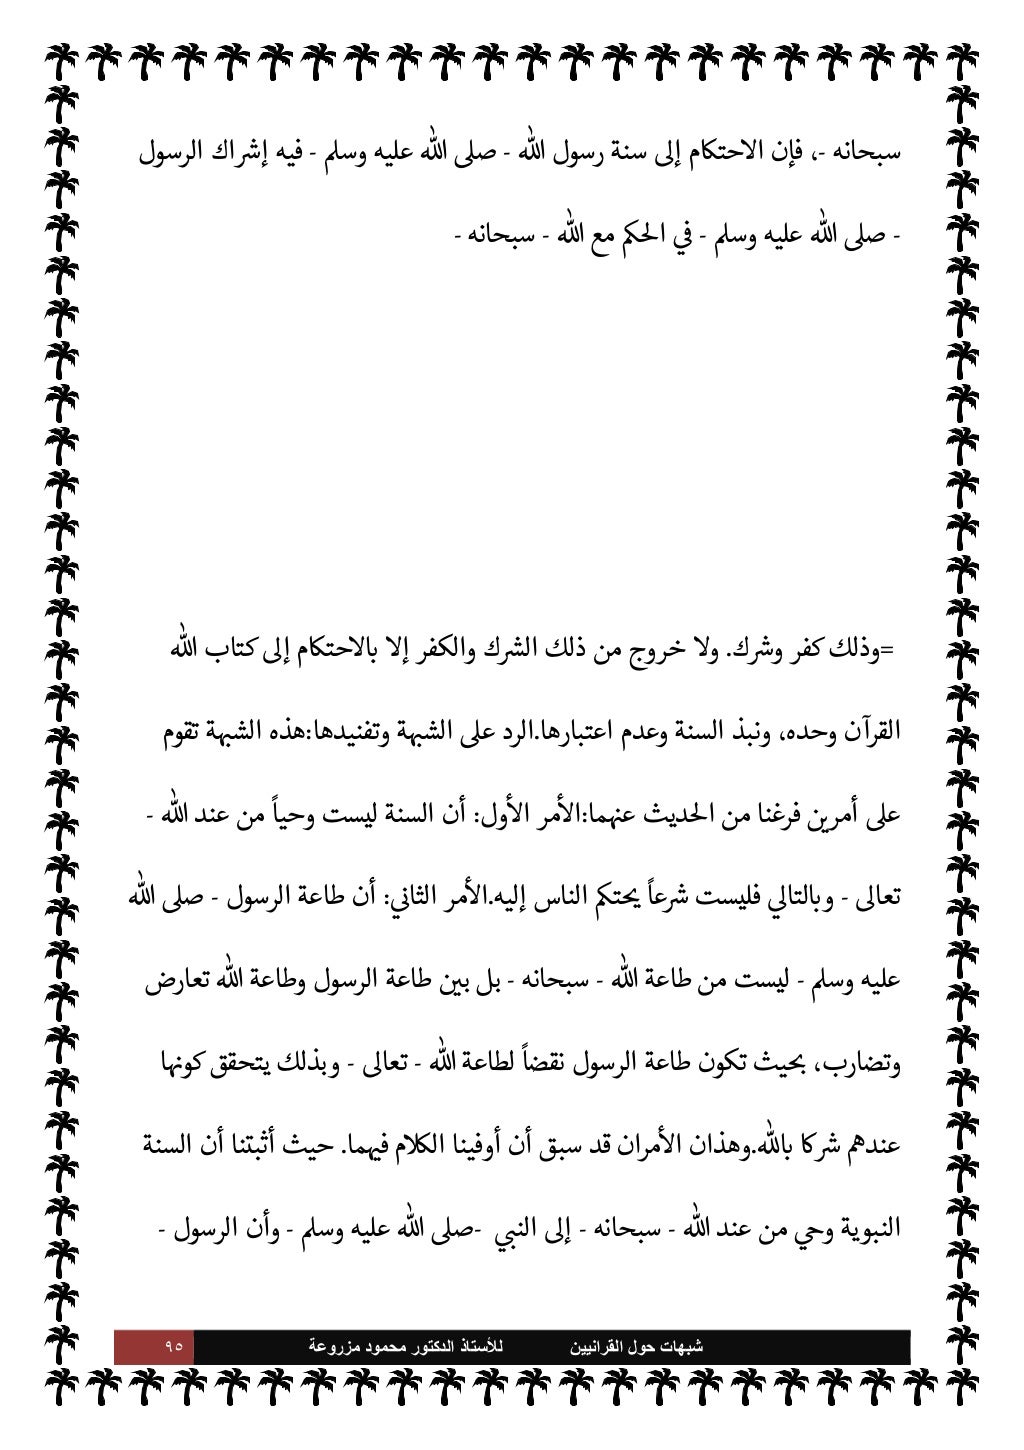 سبحانه -، فإن الاحتكام إلى سنة رسول الله - صلى الله عليه وسلم - فيه إشراك الرسول
- صلى الله عليه وسلم - في الحكم مع الله - سبحانه -
=وذلك كفر وشرك. ولا خروج من ذلك الشرك والكفر إلا بالاحتكام إلى كتاب الله
القرآن وحده، ونبذ السنة وعدم اعتبارها.الرد على الشبهة وتفنيدها:هذه الشبهة تقوم
على أمرين فرغنا من الحديث عنهما:الأمر الأول: أن السنة ليست وحياً من عند الله -
تعالى - وبالتالي فليست شرعاً يحتكم الناس إليه.الأمر الثاني: أن طاعة الرسول - صلى الله
عليه وسلم - ليست من طاعة الله - سبحانه - بل بين طاعة الرسول وطاعة الله تعارض
وتضارب، بحيث تكون طاعة الرسول نقضاً لطاعة الله - تعالى - وبذلك يتحقق كونها
عندهم شركا بالله.وهذان الأمران قد سبق أن أوفينا الكلام فيهما. حيث أثبتنا أن السنة
النبوية وحي من عند الله - سبحانه - إلى النبي -صلى الله عليه وسلم - وأن الرسول -
شبهات حول القرانيين للأستاذ الدكتور محمود مزروعة ٩٥